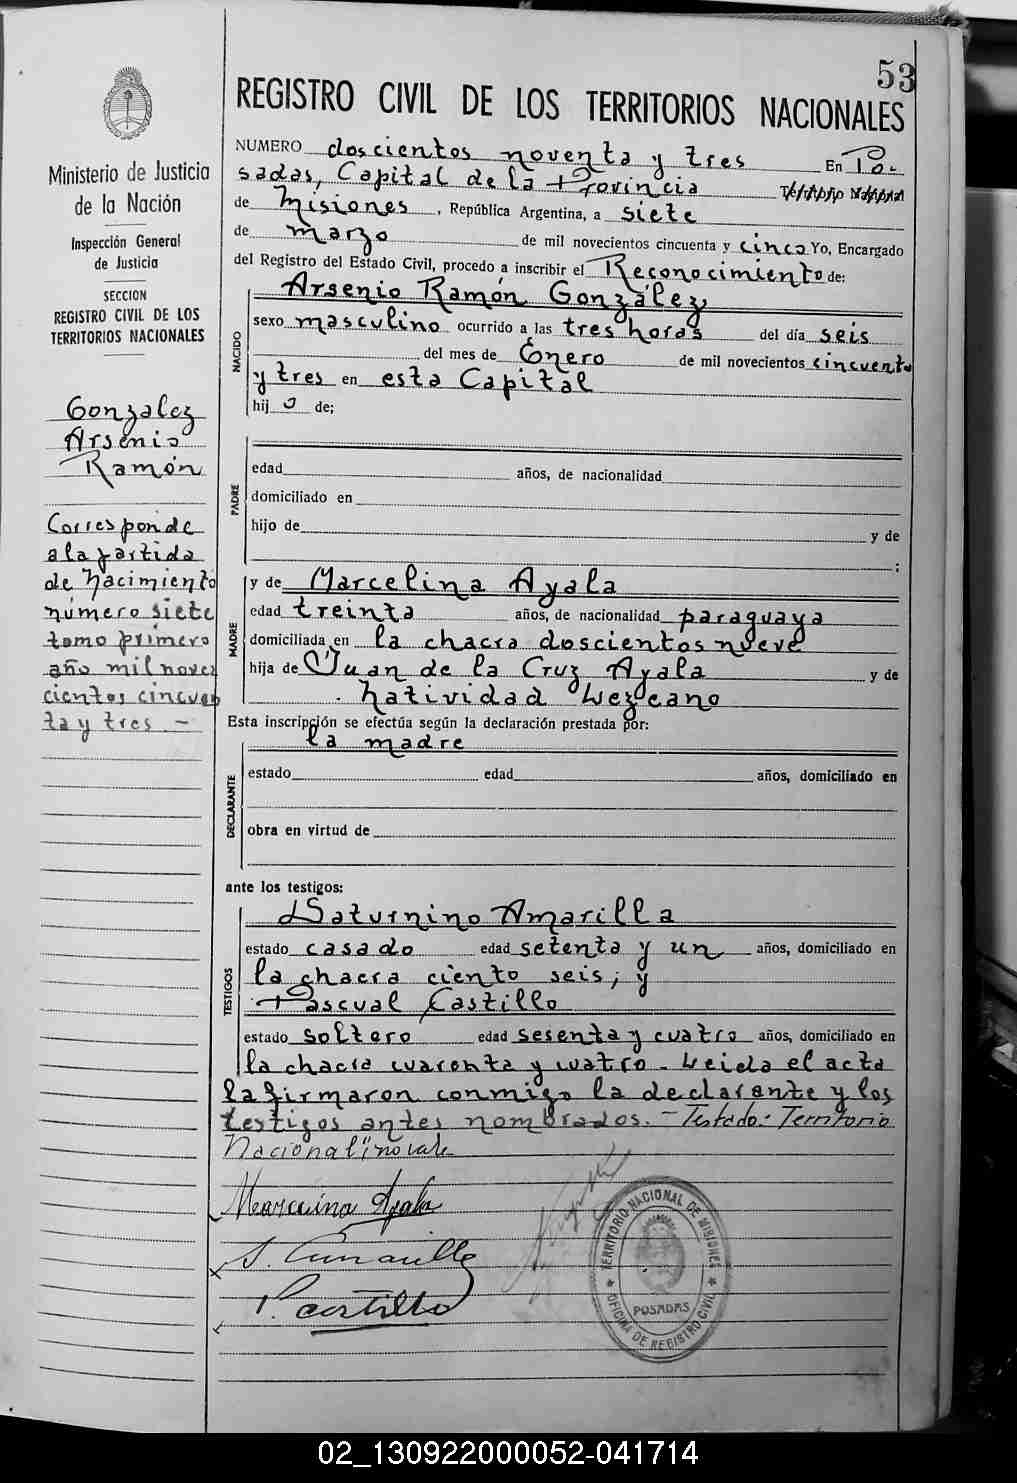 53
REGISTRO CIVIL DE LOS TERRITORIOS NACIONALES
Ministerio de Justicia
de la Nación
Inspección General
de Justicia
SECCION
REGISTRO CIVIL DE LOS
TERRITORIOS NACIONALES
Gonzalez
Arsenio
Ramón
Corresponde
a la partida
de nacimiento
número siete
tomo primero
año mil nove
cientos cincuen
ta y tres –
NUMERO doscientos noventa y tres En Po-
sadas, Capital de la Provincia
de Misiones, República Argentina, a siete
de marzo de mil novecientos cincuenta y cinco Yo, Encargado
del Registro del Estado Civil, procedo a inscribir el Reconocimiento de:
NACIDO
Arsenio Ramón González
sexo masculino ocurrido a las tres horas del día seis
del mes de Enero de mil novecientos cincuenta
y tres en esta Capital
hij o de;
PADRE
edad años, de nacionalidad
domiciliado en
hijo de y de
;
MADRE
y de Marcelina Ayala
edad treinta años, de nacionalidad paraguaya
domiciliada en la chacra doscientos nueve
hija de Juan de la Cruz Ayala y de
Natividad Lezcano
Esta inscripción se efectúa según la declaración prestada por:
la madre
DECLARANTE
estado edad años, domiciliado en
obra en virtud de
ante los testigos:
TESTIGOS
Saturnino Amarilla
estado casado edad setenta y un años, domiciliado en
la chacra ciento seis; y
Pascual Castillo
estado soltero edad sesenta y cuatro años, domiciliado en
la chacra cuarenta y cuatro. Leida el acta
la firmaron conmigo la declarante y los
testigos antes nombrados. – Testado: Territorio
Nacional" no vale
Marcelina Ayala
S. Amarilla
P. Castillo
TERRITORIO NACIONAL DE MISIONES
POSADAS
OFICINA DE REGISTRO CIVIL
02_130922000052-041714